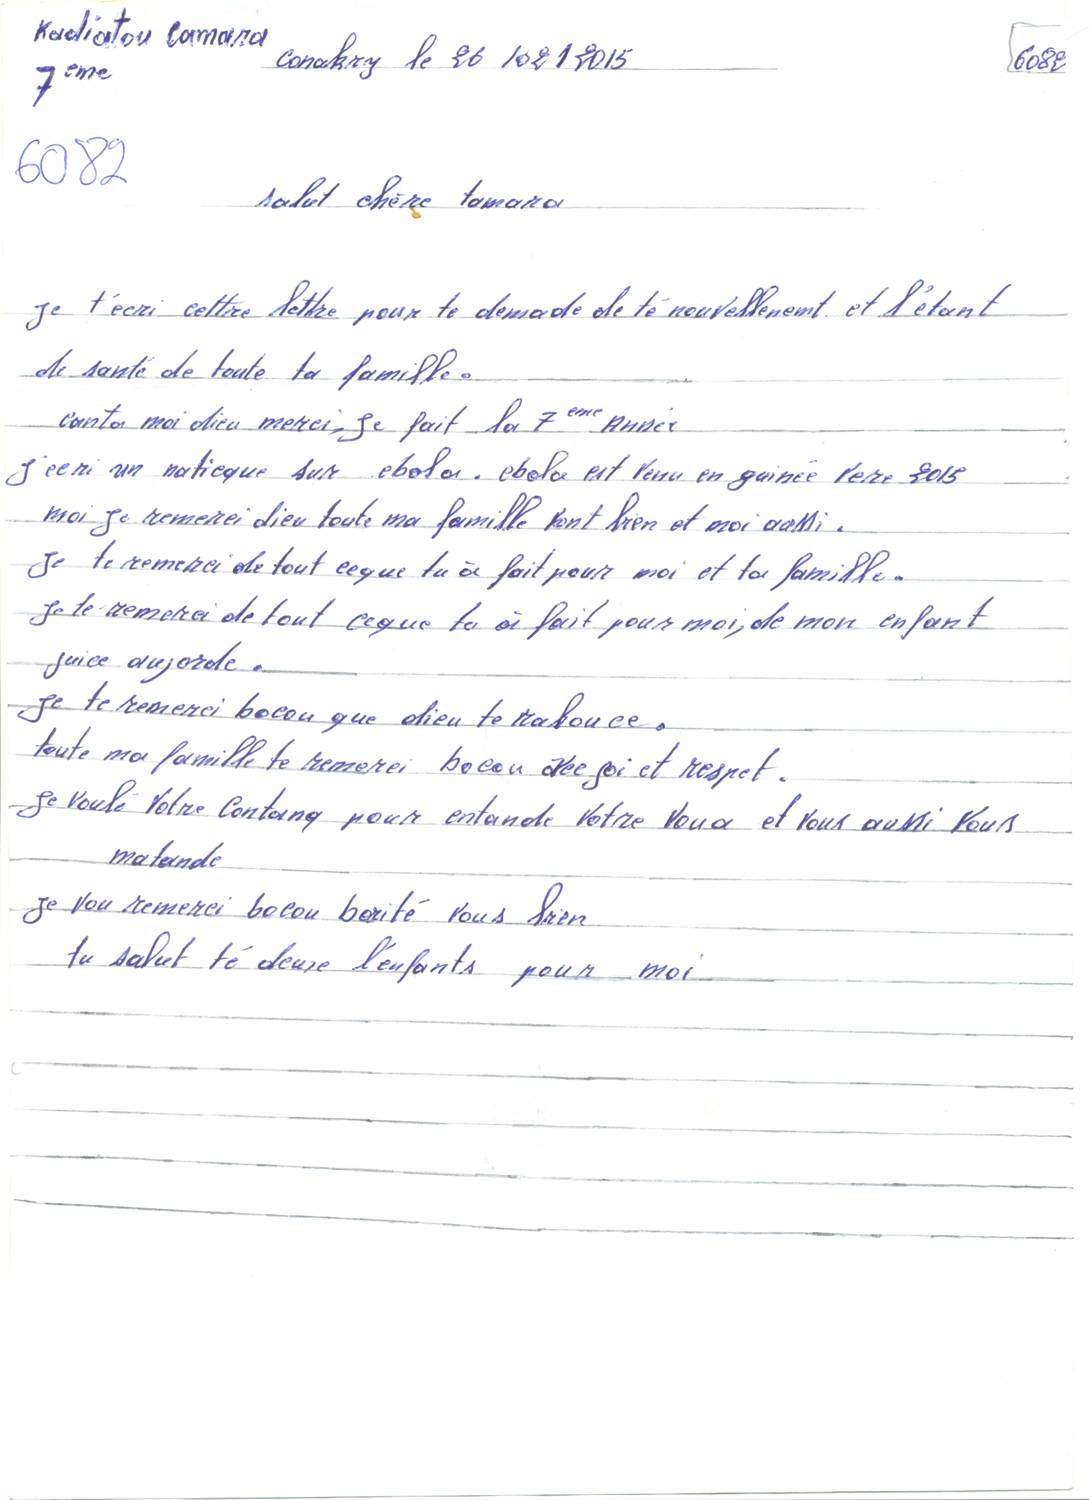 Kadiatou Camara
7 eme
Conakry le 26 102 1 2015
6082
6082
salut chère tamara
Je t'écri cettre lettre pour te demade de té nouvellenemt et l'étant
de santé de toute ta famille.
canta moi dieu merci, Je fait la 7 eme Année
J'ecri un naticque sur ebola. ebola est venu en guinée vere 2015
moi Je remerci dieu toute ma famille vont bien et moi aussi.
Je te remerci de tout ceque tu à fait pour moi et ta famille.
Je te remerci de tout ceque ta à fait pour moi, de mon enfant
juice aujorde.
Je te remerci bocou que dieu te rabouce.
toute ma famille te remerci bocou avec joi et respet.
Je voulé votre Contang pour entande votre voua et vous aussi vous
matande
Je vou remerci bocou borité vous bien
tu salut té deuxe l'enfants pour moi